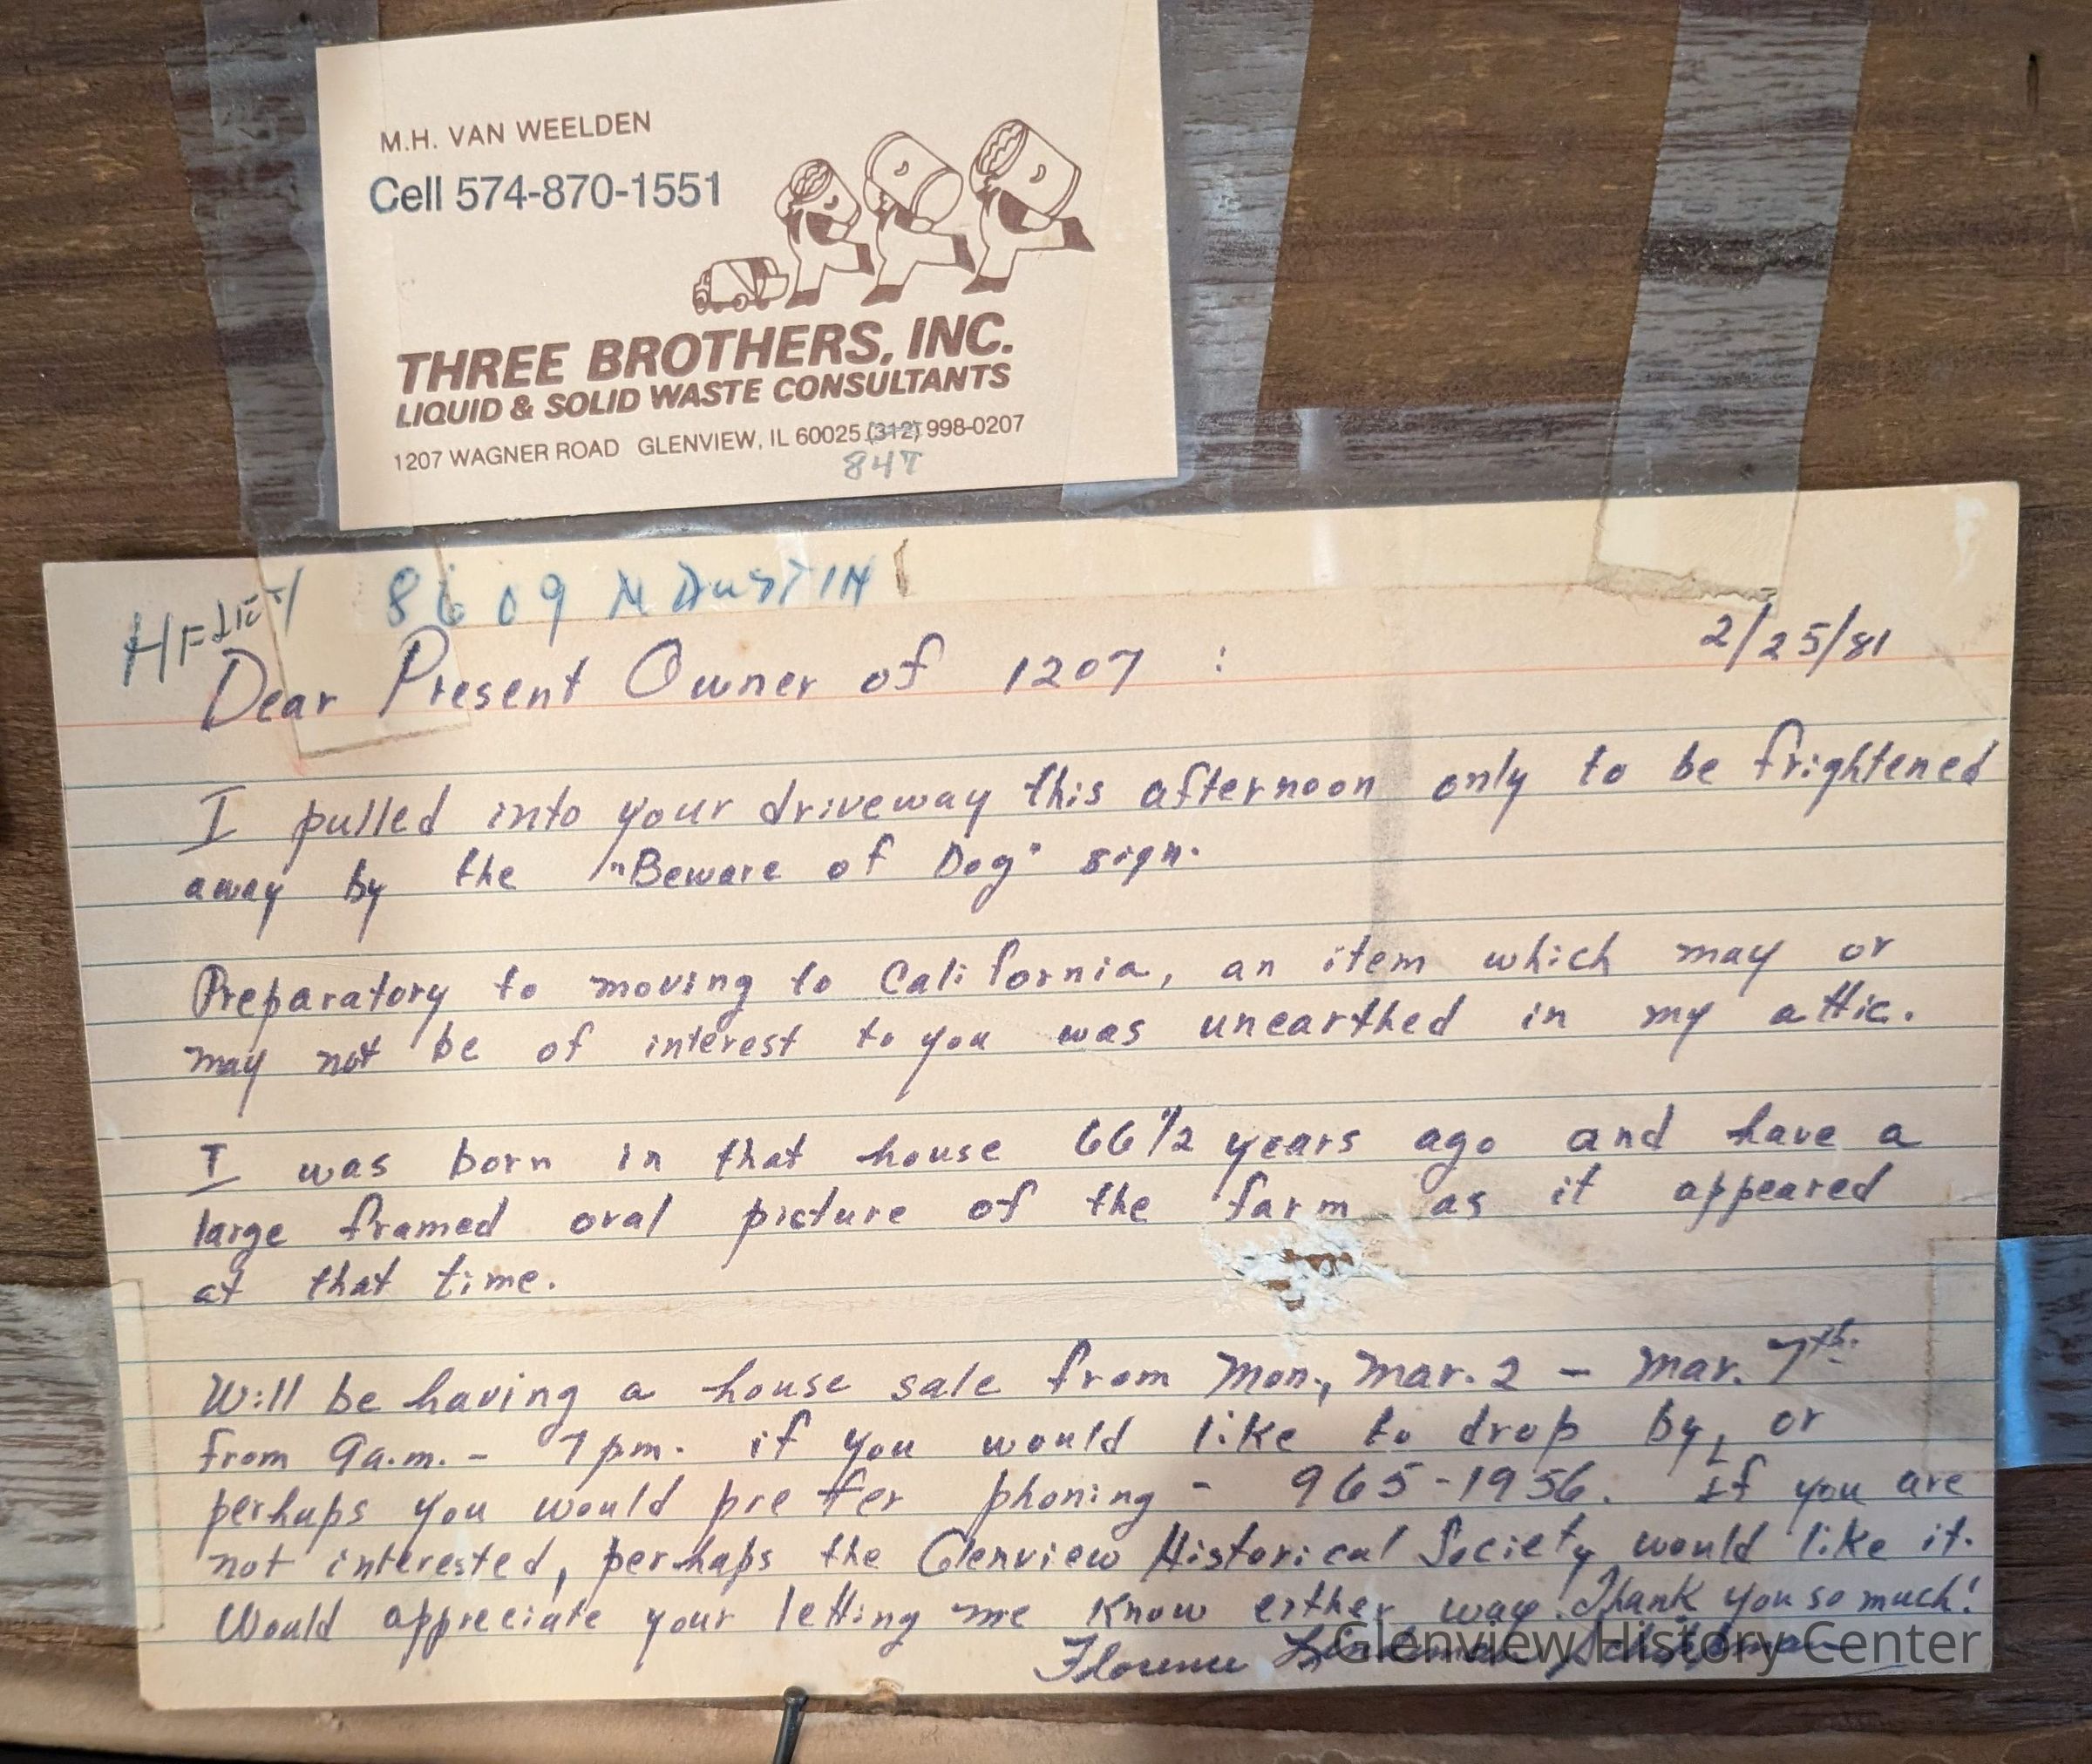 M.H. VAN WEELDEN
Cell 574-870-1551
THREE BROTHERS, INC.
LIQUID & SOLID WASTE CONSULTANTS
1207 WAGNER ROAD GLENVIEW, IL 60025 (312) 998-0207
847
8609 N AUSTIN
2/25/81
Dear Present Owner of 1207 :
I pulled into your driveway this afternoon only to be frightened
away by the "Beware of Dog" sign.
Preparatory to moving to California, an item which may or
may not be of interest to you was unearthed in my attic.
I was born in that house 66 1/2 years ago and have a
large framed oval picture of the farm as it appeared
at that time.
Will be having a house sale from Mon., Mar. 2 - Mar. 7th.
from 9a.m. - 7pm. if you would like to drop by, or
perhaps you would prefer phoning - 965-1956. If you are
not interested, perhaps the Glenview Historical Society would like it.
Would appreciate your letting me know either way. Thank you so much!
Florence
Glenview History Center